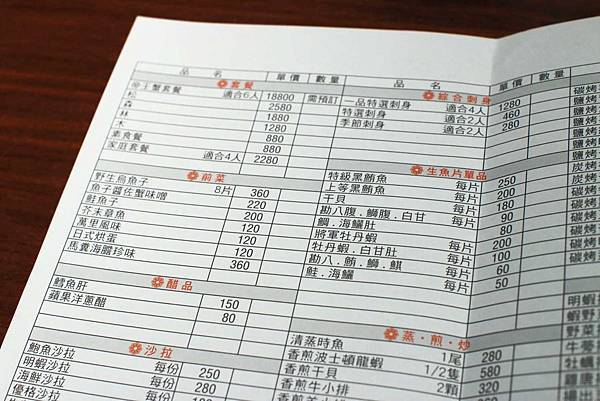 品 名 單價 數量
套餐
帝王蟹套餐 適合6人 18800 需預訂
松 2580
森 1880
林 1280
木 880
素食套餐 880
家庭套餐 適合4人 2280
前菜
野生烏魚子 8片 360
魚子醬佐蟹味噌 220
鮭魚子 200
芥末章魚 120
萬里風味 120
日式烘蛋 120
馬糞海膽珍味 360
醋品
鱈魚肝 150
蘋果洋蔥醋 80
沙拉
鮑魚沙拉 每份 250
明蝦沙拉 每份 280
海鮮沙拉 每份
優格沙拉 每份
品 名 單價 數量
綜合刺身
一品特選刺身 適合4人 1280
特選刺身 適合2人 460
季節刺身 適合2人 280
生魚片單品
特級黑鮪魚 每片 250
上等黑鮪魚 每片 200
干貝 180
勘八腹．鰤腹．白甘 每片 90
鯛．海鱺肚 80
將軍牡丹蝦 200
牡丹蝦．白甘肚 每片 100
勘八．鮪．鰤．鯕 每片 60
鮭．海鱺 每片 50
蒸・煎・炒
清蒸時魚 1尾 280
香煎波士頓龍蝦 1/2隻 580
香煎干貝 2顆 320
香煎牛小排
單價 數量
碳烤
碳烤
鹽烤
鹽烤
碳烤
鹽烤
炭烤
碳烤
碳烤
碳烤
明蝦
蝦野
野菜
牛蒡
牡蠣